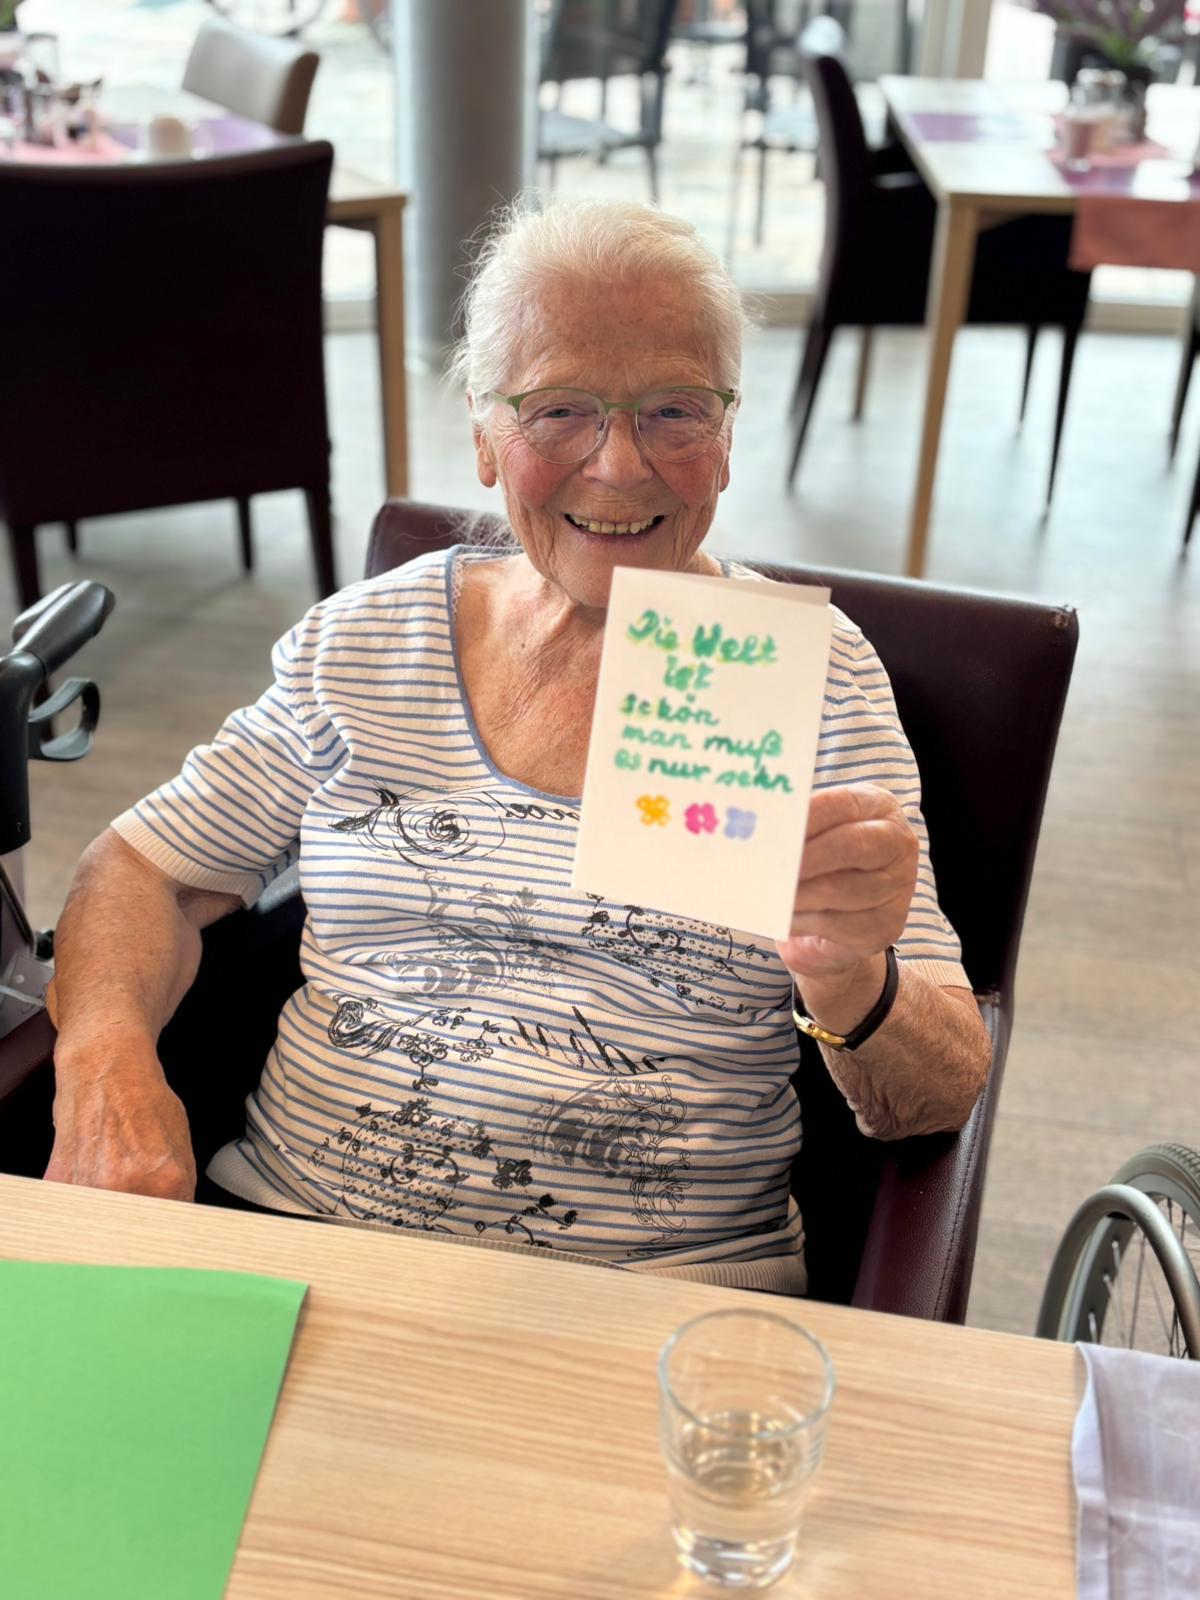 Die Welt
ist
schön
man muß
es nur sehn